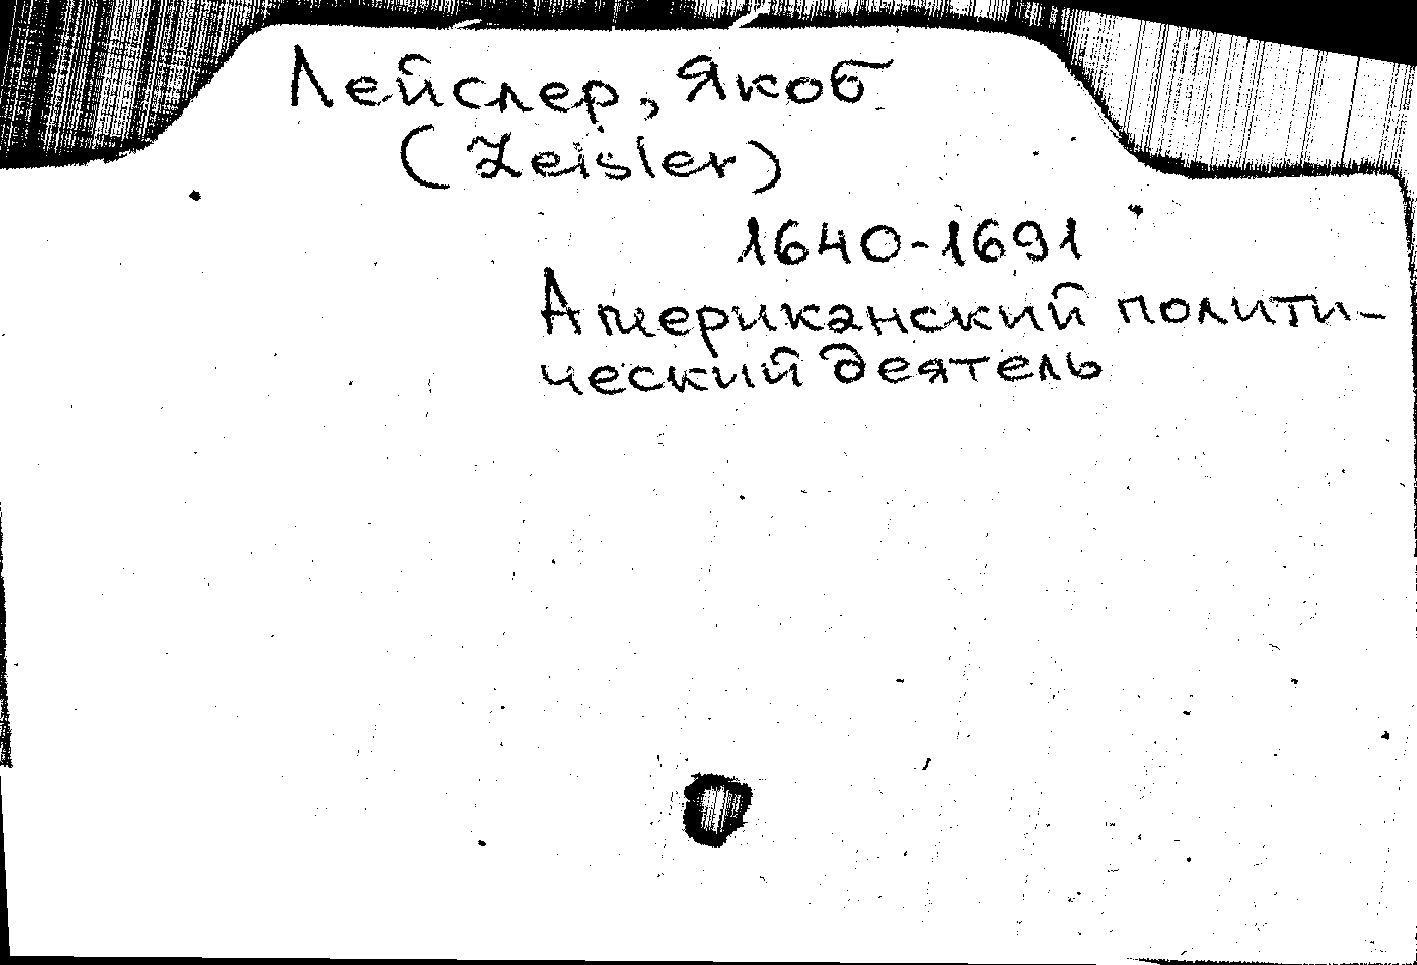 Лейслер, Якоб
(Leisler)
1640-1691
Американский полити-
ческий деятель